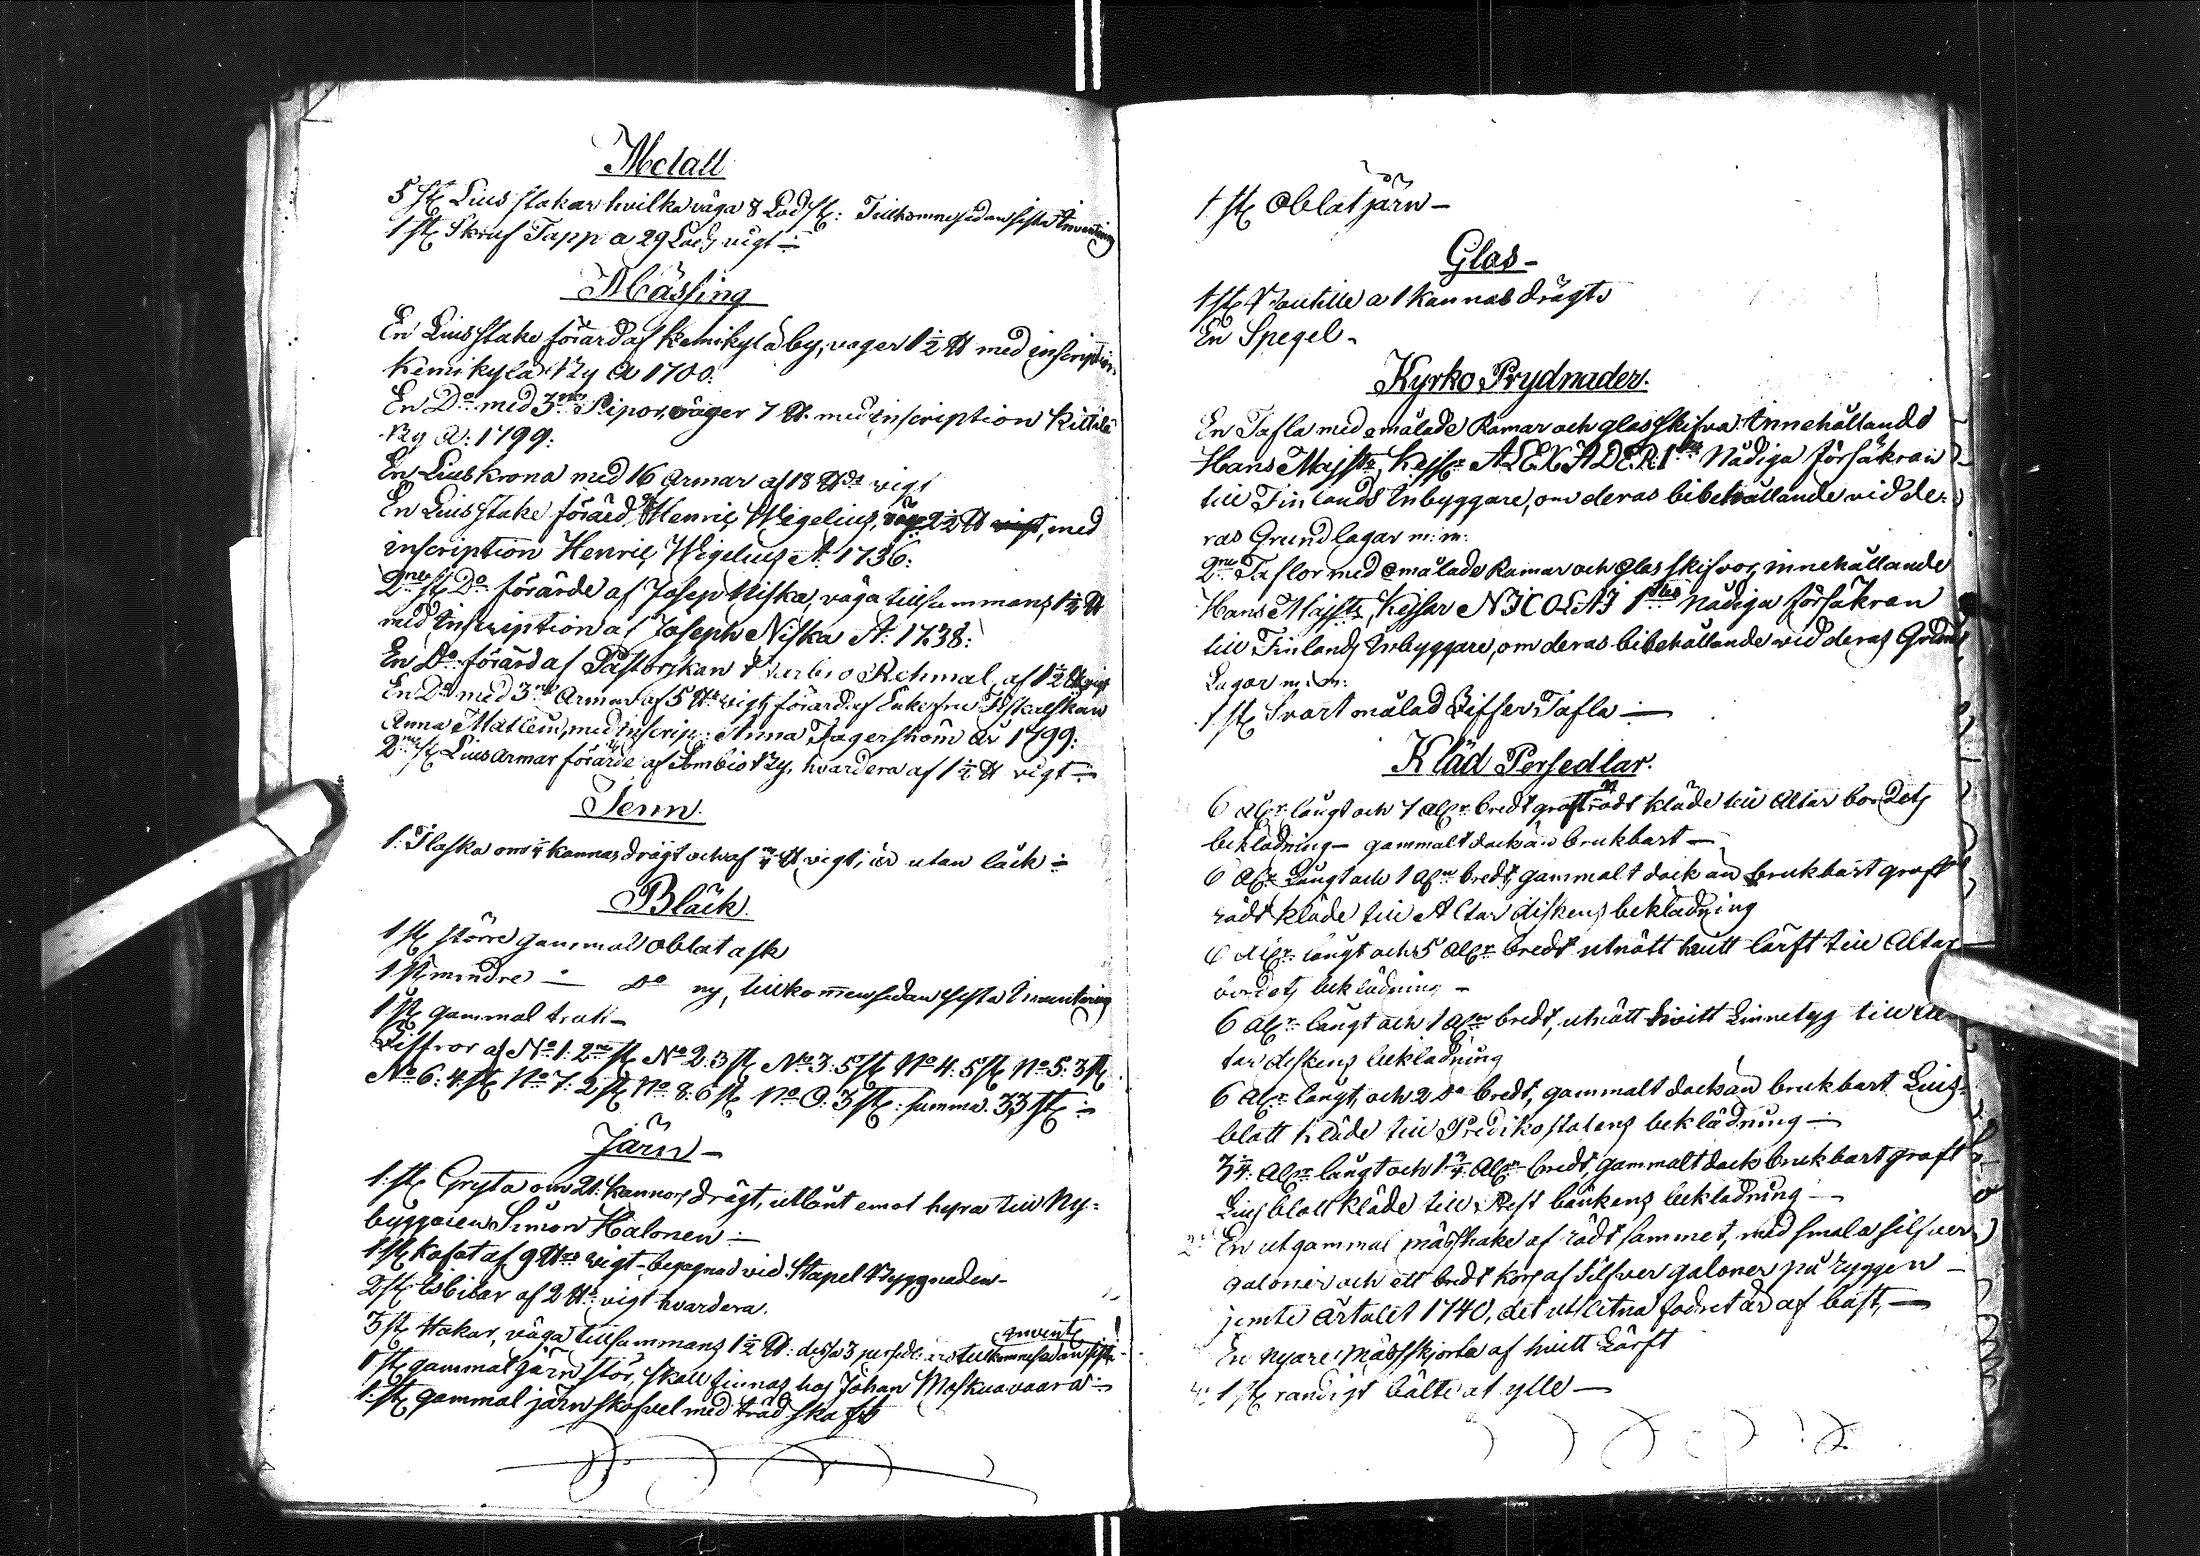 Metall
5 st. Lius stakar hvilka väga 8 Lod st: Tillkomne sedan sista Inventering
1 st. Skruf Tapp a 29 Lods vigt ÷
Mässing
En Liusstake förärd af Kemikylä by, väger 1½ ℔ med inscription
Kemikylä By A 1700.
En Do med 3ne Pipor, väger 7 ℔. med inscription Kittilä
By A: 1799:
En Lius krona med 16 armar af 18 ℔ds vigt
En Liusstake förärd af Henric Wigelius, väger 2½ ℔ vigt, med
inscription Henric Wigelius A: 1736:
2ne st Do förärde af Joseph Niska, väga tillsammans 1½ ℔
med Inscription af Joseph Niska A: 1738:
En Do förärd af Pastorskan Rehmal, af 1½ ℔ vigt
En Do med 3ne Armar af 5 ℔ds vigt, förärd af Enkefru Fiskalskan
Anna Matlein, med Inscrip: Anna Fagerström År 1799:
2ne st Lius armar förärde af Sombio By, hvardera af 1½ ℔ vigt ÷
Tenn.
1. Flaska om ¾ kannas drägt och af ¾ ℔ vigt, är utan låck ÷
Bläck.
1 st större gammal oblat ask
1 st mindre — do ny, tillkommen sedan sista Inventering
1 st gammal tratt –
Ziffror af No 1: 2ne st No 2. 3 st No 3: 5 st No 4: 5 st No 5: 3 st
No 6: 4 st No 7: 2 st No 8: 6 st No 0: 3 st: summa. 33 st ÷
Järn –
1. st Gryta om 21. kannors drägt, utlånt emot hyra till Ny=
byggaren Simon Halonen ÷
1 st Kofot af 9 ℔ds vigt – begagnad vid Stapel Byggnaden –
2 st Isbilar af 2 ℔s vigt hvardera.
3 st Hakar, väga tillsammans 1½ ℔: dessa 3 persedl: äro tillkomne sedan sista Invent:
1 st gammal järn stör, skall finnas hos Johan Moskuvaara ÷
1. st gammal järn skofvel med träd skaft
1 st Oblatjärn –
Glas –
1 st Bouteille a 1 kannas drägt
En Spegel –
Kyrko Prydnader.
En Tafla med målade Ramar och glas skifva Innehållande
Hans Majsts Kejss ALEXADER. 1stes Nådiga försäkran
till Finlands Inbyggare, om deras bibehållande vid de=
ras Grundlagar m: m:
2ne Taflor med målade Ramar och Glas skifvor, innehållande
Hans Majsts, Kejsar NICOLAI 1stes Nådiga försäkran
till Finlands Inbyggare, om deras bibehållande vid deras Grund
Lagar m: m:
1 st Svart målad Ziffer Tafla —
Kläd Persedlar.
6 Alnr långt och 1 Alnr bredt groft rödt kläde till Altar bordets
beklädning – gammalt dock än brukbart —
6 Alnr Långt och 1 Aln bredt, gammalt dock än brukbart groft
rödt kläde till Altar diskens beklädning
6 Alnr långt och 5 Alnr bredt utnött hvitt lärft till Altar
bordets beklädning –
6 Alnr långt och 1 Aln bredt, utnött hvitt Linnetyg till Al
tar diskens beklädning
6 Alnr långt, och 2 Do bredt, gammalt dock än brukbart Lius=
blått kläde till Predikostolens beklädning –
3¾. Alnr långt och 1¾. Alnr bredt, gammalt dock brukbart groft
Lius blått kläde till bänkens beklädning —
En utgammal mässhake af rödt sammet, med smala silfver
galoner och ett bredt kors af Silfver galoner på ryggen –
jemte årtalet 1740, det utslitna fodret är af baft, —
En nyare Mässkjorta af hvitt Lärft
1 st randigt bälte af ylle —